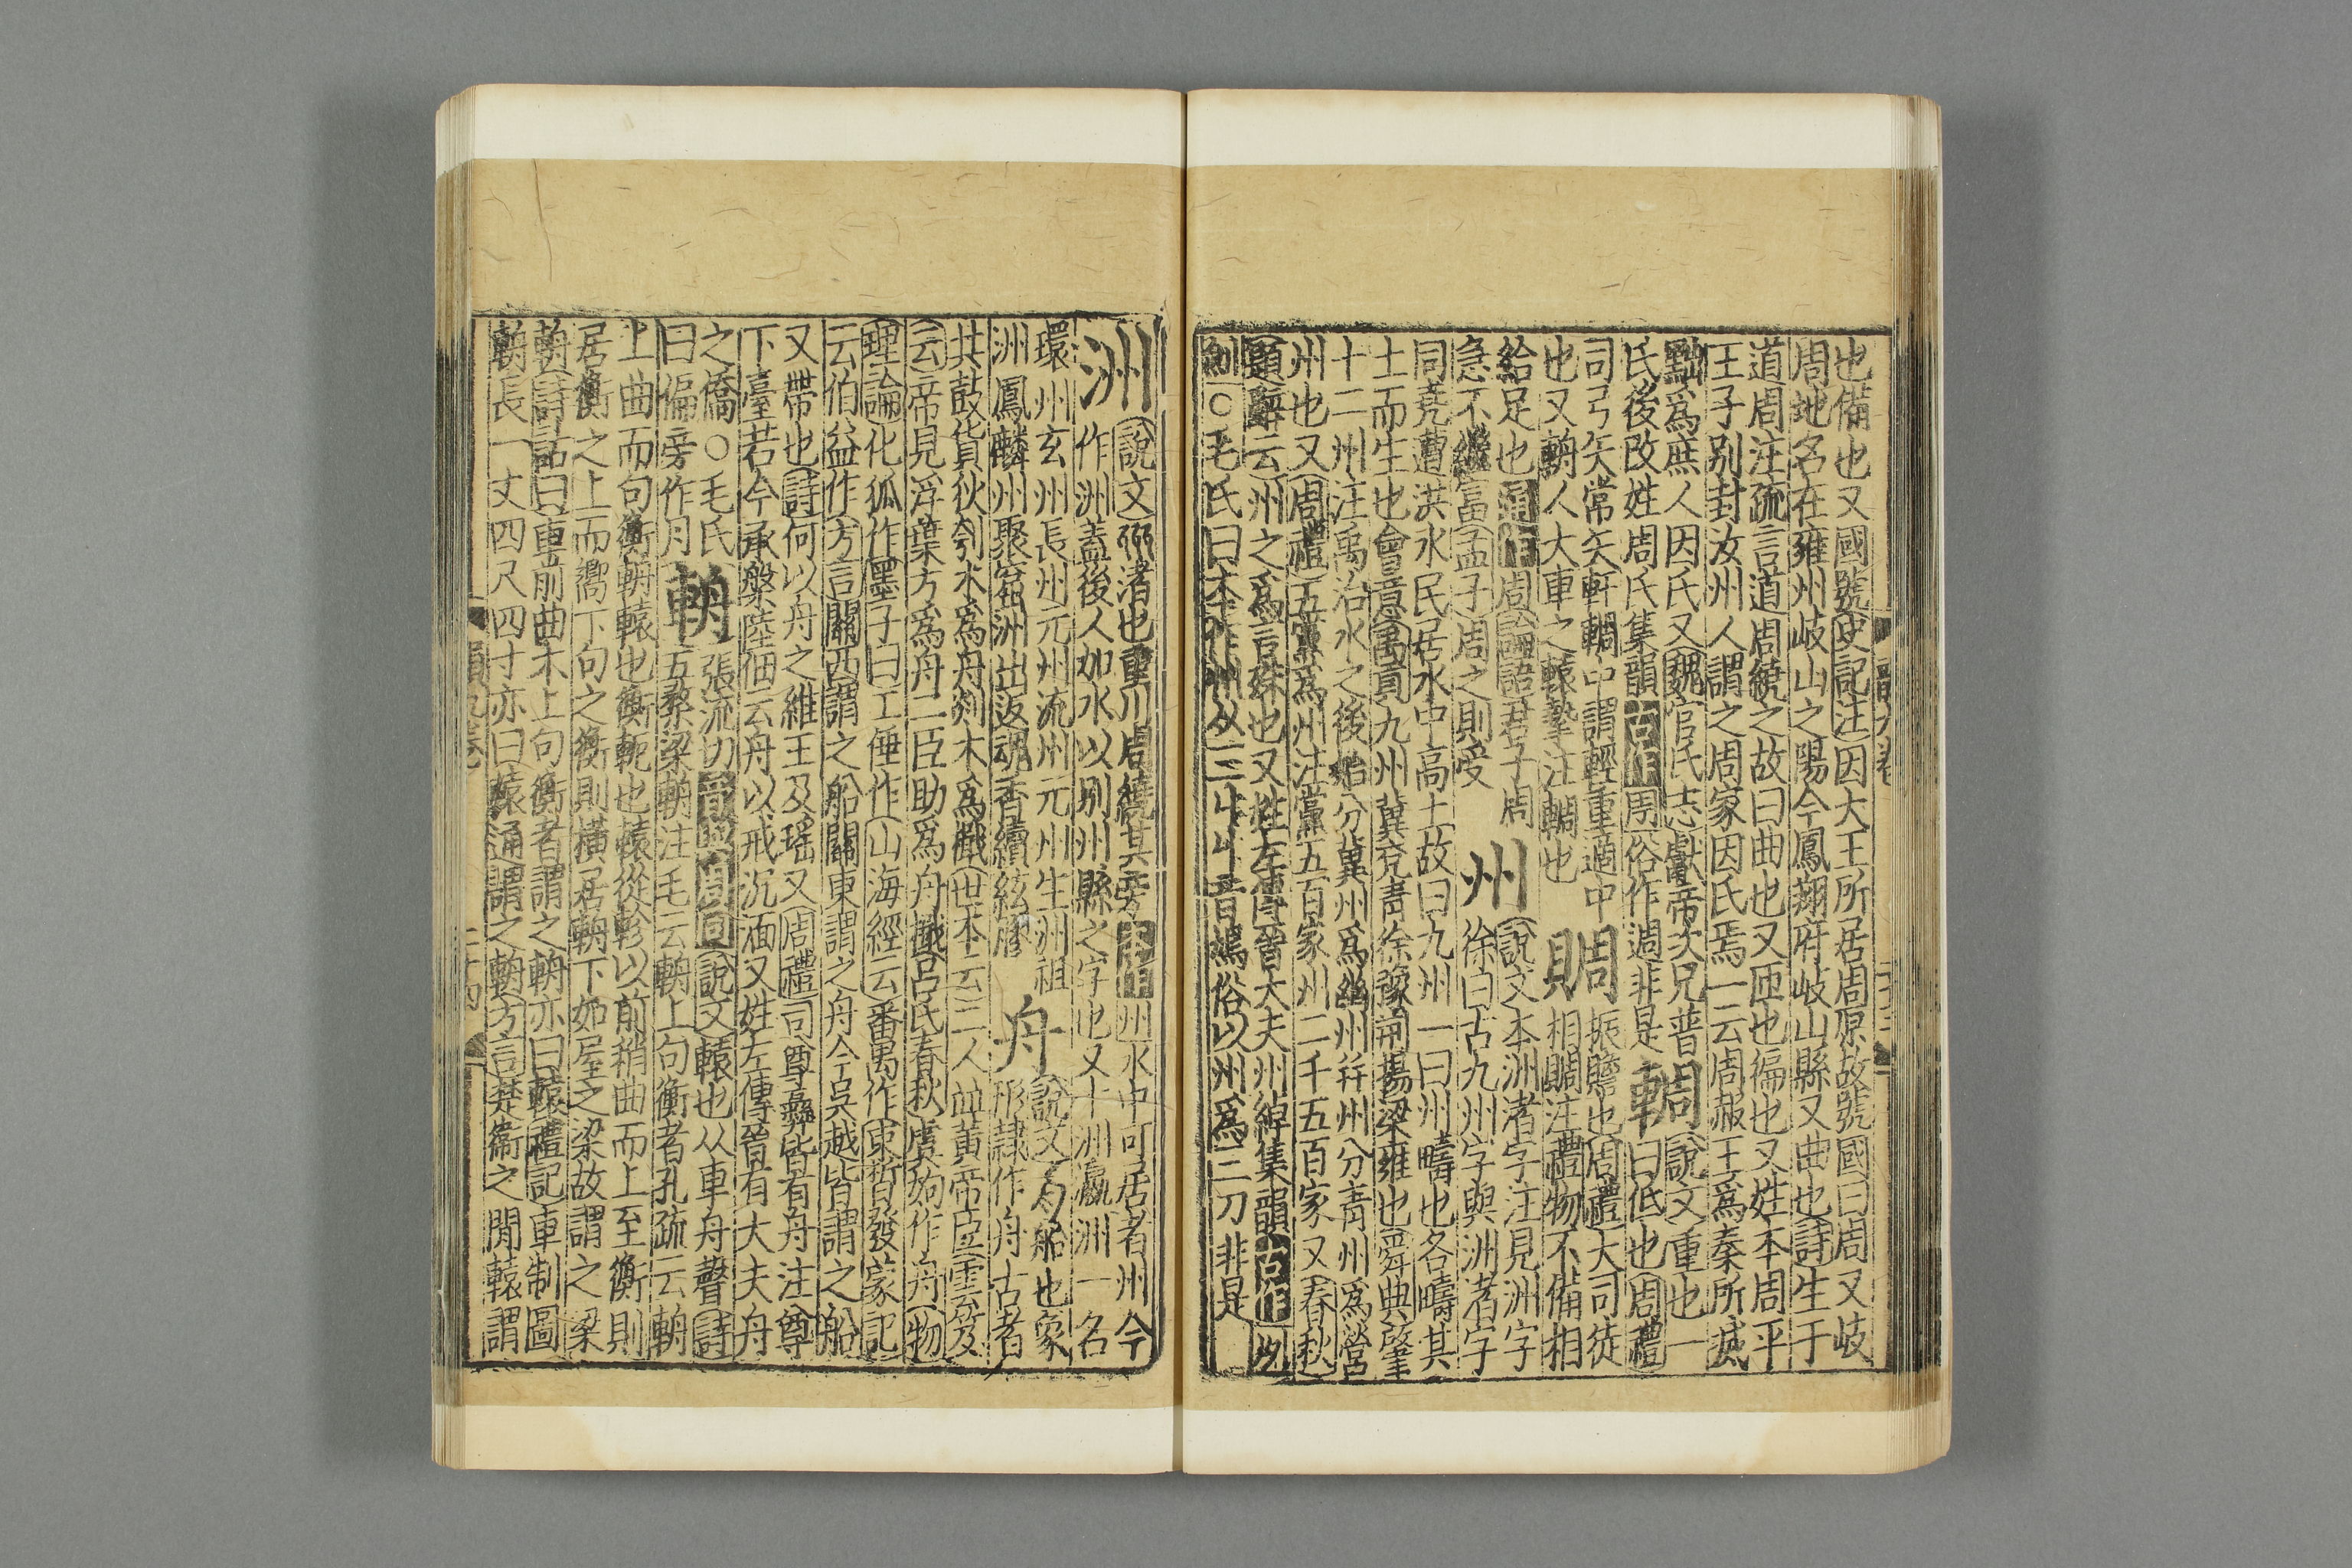 也備也又國號史記注因大王所居周原故號國曰周又岐
周地名在雍州岐山之陽今鳳翔府岐山縣又曲也詩生于
道周注疏言道周繞之故曰曲也又匝也徧也又姓本周平
王子別封汝州人謂之周家因氏焉一云周赧王爲秦所㓕
黜爲庶人因氏又魏官氏志獻帝次兄普
氏後改姓周氏集韻古作周俗作週非是
輖
說文重也一
曰低也周禮
司弓矢常矢軒輖中謂輕重適中
也又輈人大車之轅摯注輖也
賙
振贍也周禮大司徒
相賙注禮物不備相
給足也通作周論語君子周
急不繼富孟子周之則受
州
說文本洲渚字注見洲字
徐曰古九州字與洲渚字
同堯遭洪水民居水中高土故曰九州一曰州疇也各疇其
土而生也會意禹貢九州冀兗青徐豫荊揚梁雍也舜典肇
十二州注禹治水之後始分冀州爲幽州并州分青州爲營
州也又周禮五黨爲州注黨五百家州二千五百家又春秋
題辭云州之爲言殊也又姓左傳晉大夫州綽集韻古作
○毛氏曰本作州从三刀刀音搗俗以州爲三刀非是
洲
說文渚也重川周繞其旁本作州水中可居者州今
作洲蓋後人加水以別州縣之字也又十洲瀛洲一名
環州玄州長州元州流州元州生洲祖
洲鳳麟州聚窟洲出返魂香續絃膠
舟
說文船也象
形隷作舟古者
共鼓貨狄刳木爲舟剡木爲檝世本云二人並黃帝臣雲笈
云帝見浮葉方爲舟二臣助爲舟檝呂氏春秋虞姁作舟物
理論化狐作墨子曰工倕作山海經云番禺作束晳發蒙記
云伯益作方言關西謂之船關東謂之舟今吳越皆謂之船
又帶也詩何以舟之維王及瑤又周禮司尊彝皆有舟注尊
下臺若今承槃陸佃云舟以戒沉湎又姓左傳晉有大夫舟
之僑○毛氏
曰偏旁作月
輈
張流切音與周同說文轅也从車舟聲詩
五楘梁輈注毛云輈上句衡者孔疏云輈
上曲而句衡輈轅也衡軛也轅從軫以前稍曲而上至衡則
居衡之上而嚮下句之衡則橫居輈下如屋之梁故謂之梁
輈詩詁曰車前曲木上句衡者謂之輈亦曰轅禮記車制圖
輈長一丈四尺四寸亦曰轅通謂之輈方言楚衞之間轅謂